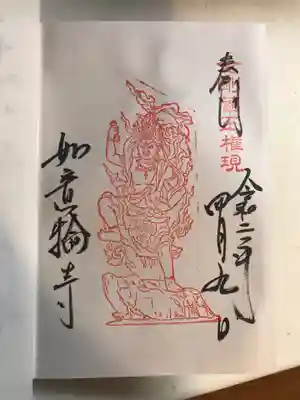 奉拝
権現
令和二年
四月九日
如意輪寺